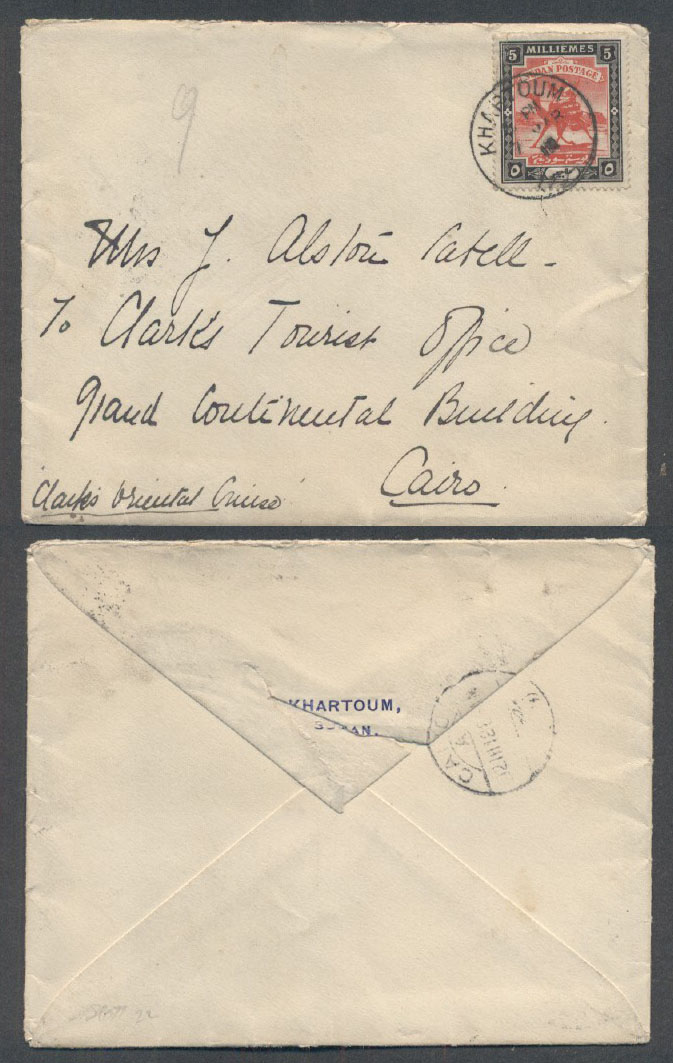 9
5 MILLIEMES 5
SUDAN POSTAGE
KHARTOUM
٥ ٥
Mrs J. Alston Catell -
To Clark's Tourist Office
Grand Continental Building.
Cairo.
Clark's Oriental Cruise
KHARTOUM,
SUDAN.
CA